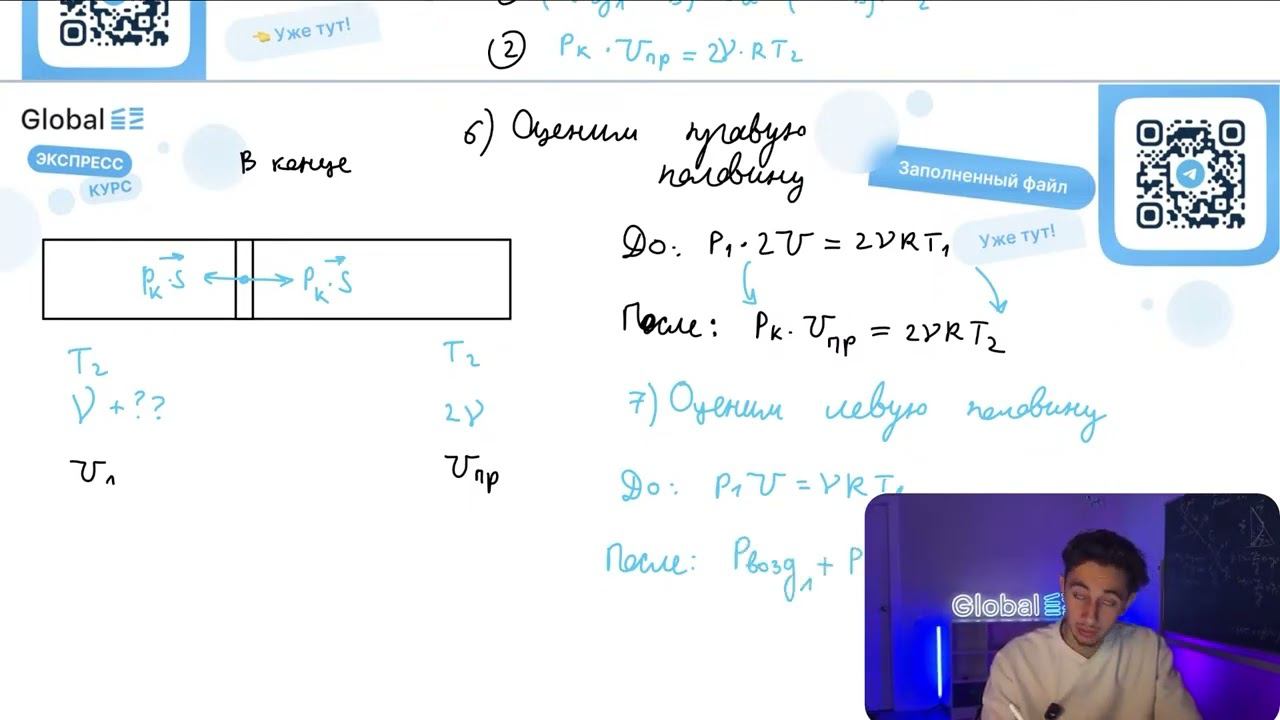 👈 Уже тут!
(2) Pк · Vпр = 2ν · RT2
Global EE
ЭКСПРЕСС
КУРС
В конце
6) Оценим правую
половину
Заполненный файл
Уже тут!
До: P1 · 2V = 2νRT1
Pк·S Pк·S
После: Pк · Vпр = 2νRT2
T2 T2
ν + ?? 2ν
7) Оценим левую половину
Vл Vпр
До: P1V = νRT1
После: Pвозд1 + P
Global EE